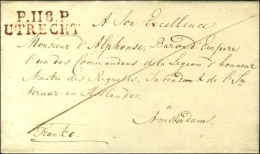 P.118.P
UTRECHT
A Son Excellence
Monsieur d'Alphonse, Baron d'Empire
l'un des Commandans de la Legion d'honneur
Maitre des Requêtes, Intendant de l'In-
terieur en Hollande
à
Amsterdam.
Franko.